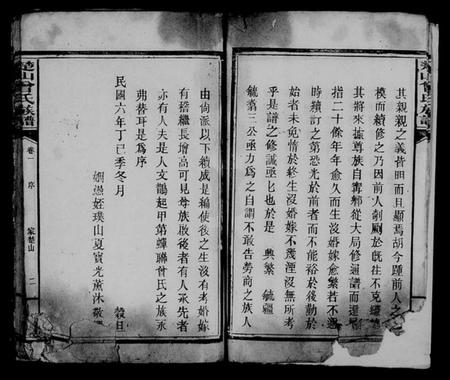 其親親之義昔由而且顯焉胡今踵前人之
模而續修之乃因前人剞劂於旣往不克繼
其將來據尊族自壽鄰從大局修通譜而還
指二十餘年年愈久而生沒婚嫁愈繁若不遇
時續訂之第恐光於前者而不能裕於後勤於
始者未免惰於終生沒婚嫁不幾湮沒無所考
乎是譜之修誠亟匕也於是 典繁 毓疆
毓翥三公亟力為之自謂不敢告勞商之族人
由尙派以下續成是編使後之生沒有考婚嫁
有稽繼長增高可見尊族啟後者有人承先者
亦有人夫是人文鵲起甲第蟬聯曾氏之族永
弗替耳是為序
民國六年丁巳季冬月 穀旦
姻愚姪璞山夏寶光薰沐敬
楚山曾氏族譜
卷一 序 家楚山 二